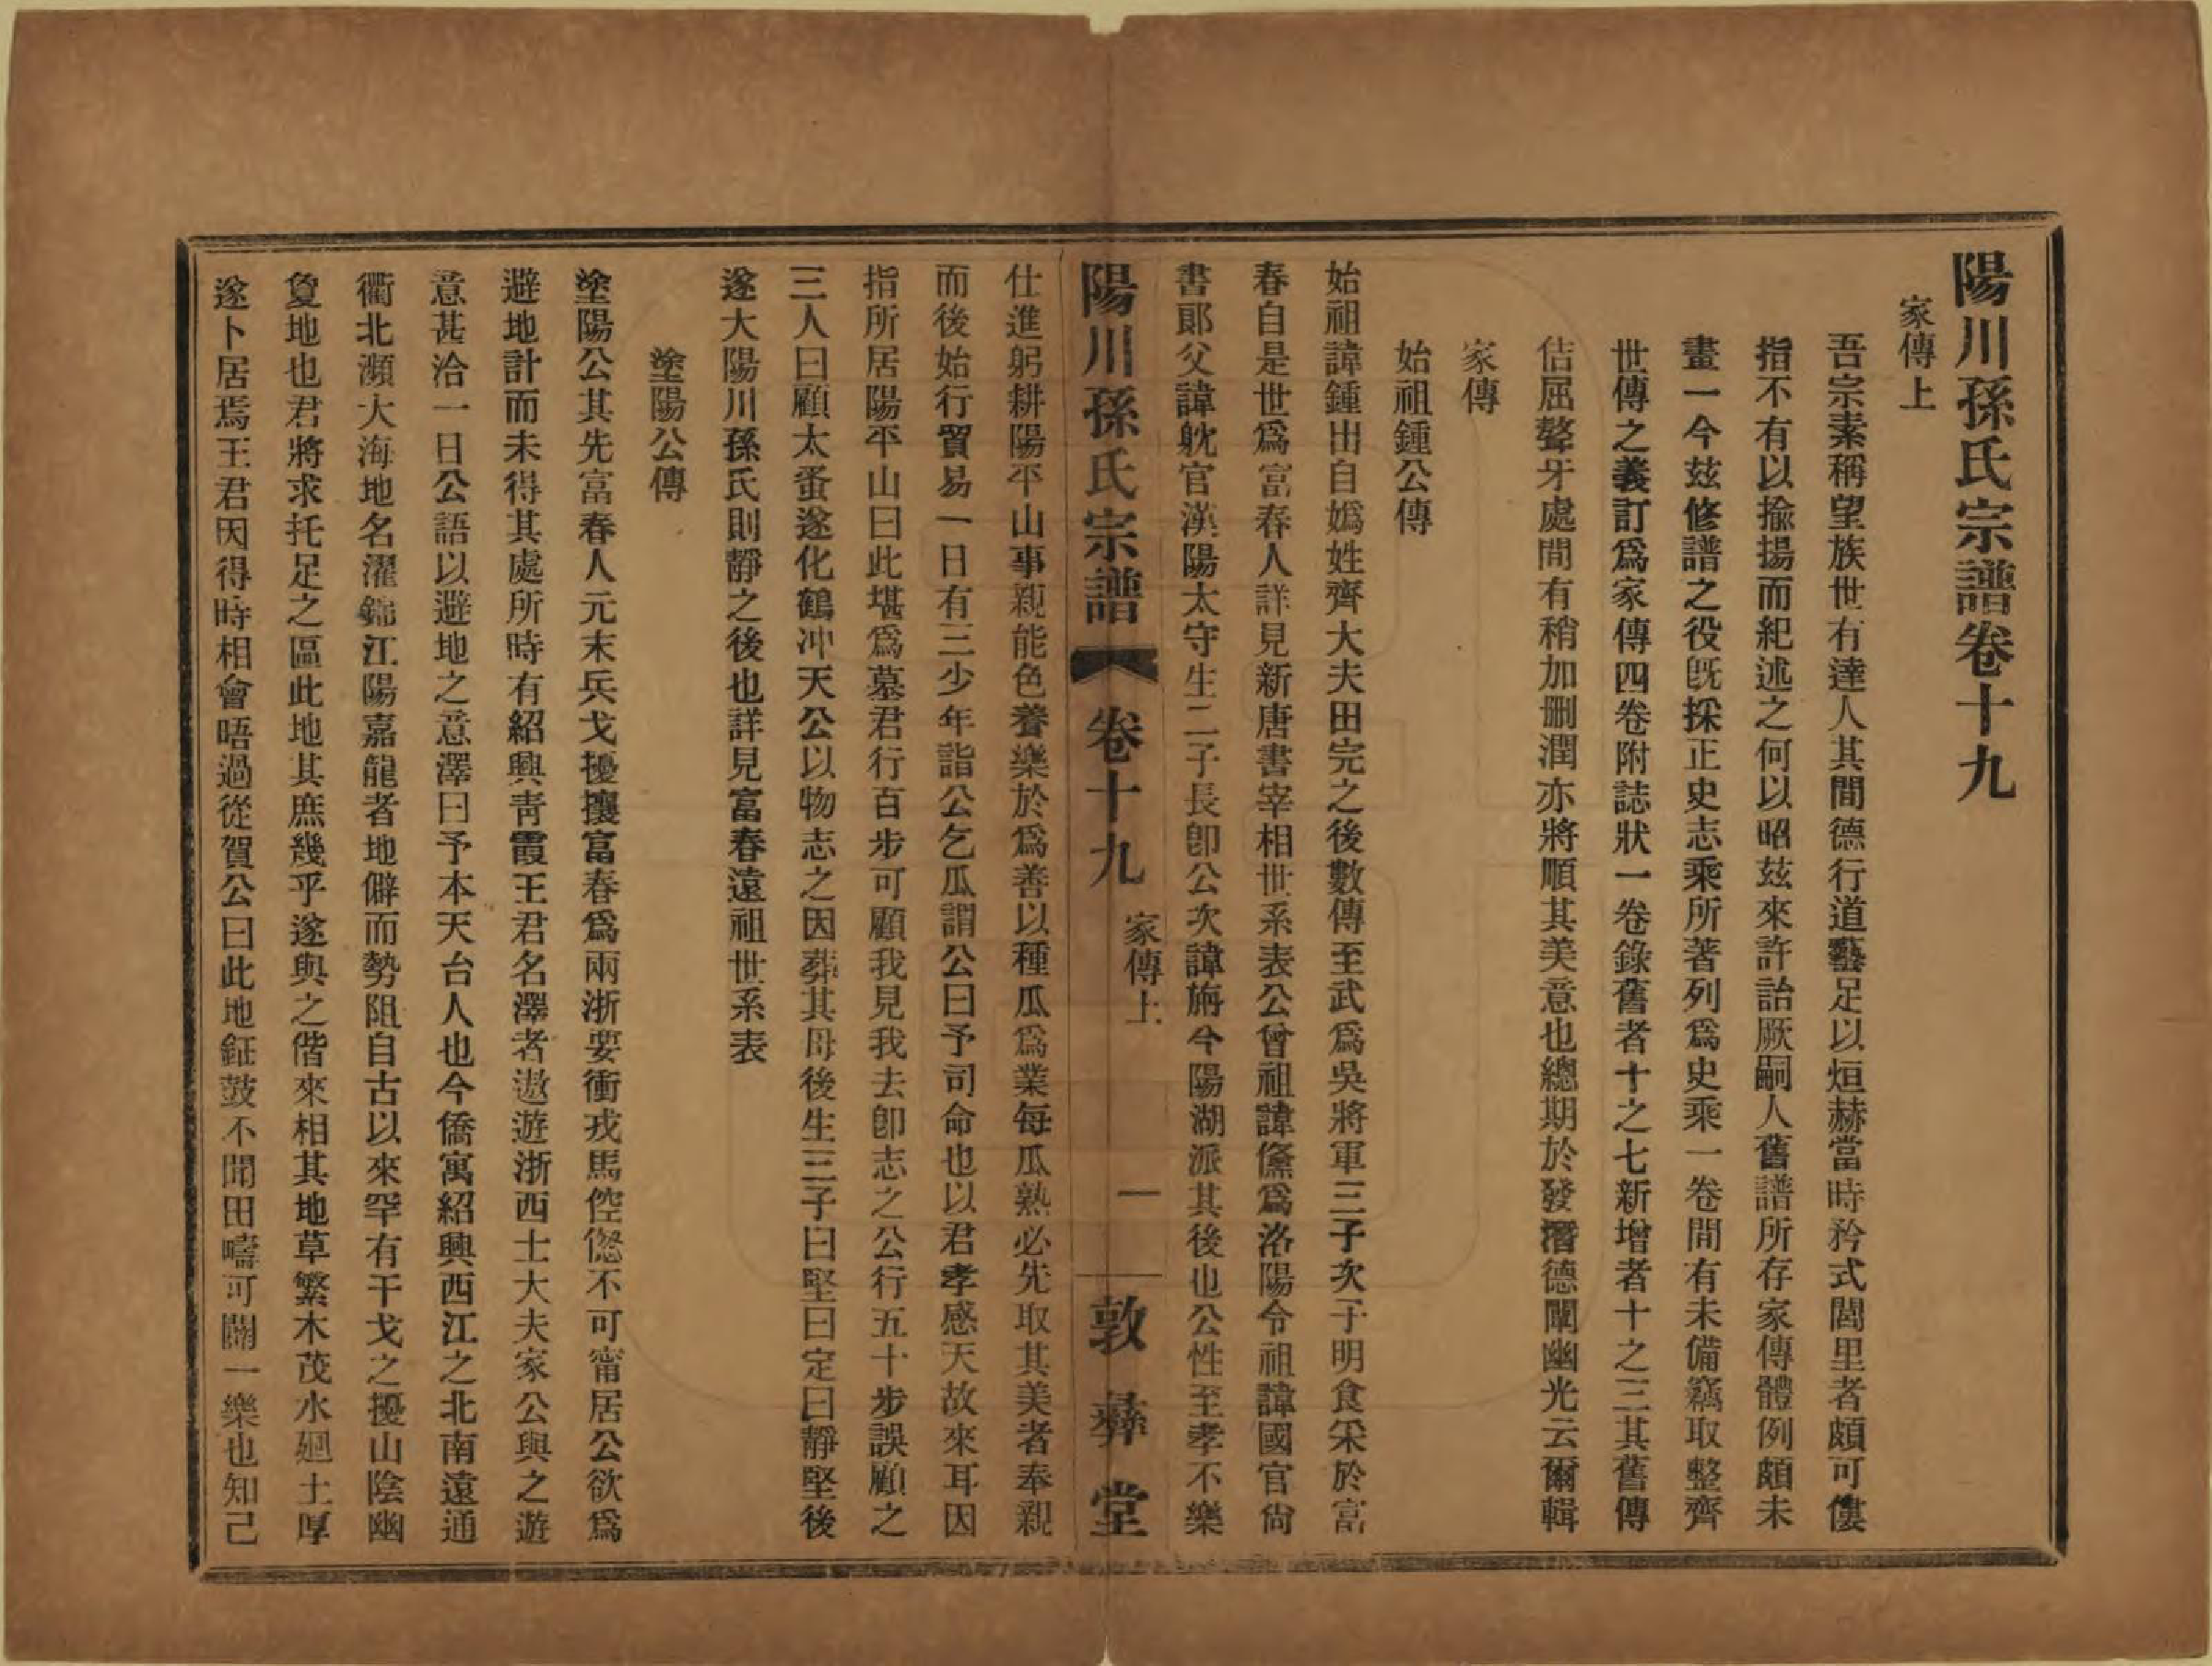 陽川孫氏宗譜卷十九
家傳上
吾宗素稱望族世有達人其間德行道藝足以烜赫當時矜式閭里者頗可僂
指不有以揄揚而紀述之何以昭玆來許詒厥嗣人舊譜所存家傳體例頗未
畫一今玆修譜之役旣採正史志乘所著列爲史乘一卷間有未備竊取整齊
世傳之義訂爲家傳四卷附誌狀一卷錄舊者十之七新增者十之三其舊傳
佶屈聱牙處間有稍加刪潤亦將順其美意也總期於發潛德闡幽光云爾輯
家傳
始祖鍾公傳
始祖諱鍾出自嬀姓齊大夫田完之後數傳至武爲吳將軍三子次子明食采於富
春自是世爲富春人詳見新唐書宰相世系表公曾祖諱儵爲洛陽令祖諱國官尙
書郞父諱躭官漢陽太守生二子長卽公次諱旃今陽湖派其後也公性至孝不樂
陽川孫氏宗譜 卷十九 家傳上 一 敦彝堂
仕進躬耕陽平山事親能色養樂於爲善以種瓜爲業每瓜熟必先取其美者奉親
而後始行貿易一日有三少年詣公乞瓜謂公曰予司命也以君孝感天故來耳因
指所居陽平山曰此堪爲墓君行百步可顧我見我去卽志之公行五十步誤顧之
三人曰顧太蚤遂化鶴冲天公以物志之因葬其母後生三子曰堅曰定曰靜堅後
遂大陽川孫氏則靜之後也詳見富春遠祖世系表
塗陽公傳
塗陽公其先富春人元末兵戈擾攘富春爲兩浙要衝戎馬倥傯不可甯居公欲爲
避地計而未得其處所時有紹興靑霞王君名澤者遨遊浙西士大夫家公與之遊
意甚洽一日公語以避地之意澤曰予本天台人也今僑寓紹興西江之北南遠通
衢北瀕大海地名濯錦江陽嘉龍者地僻而勢阻自古以來罕有干戈之擾山陰幽
敻地也君將求托足之區此地其庶幾乎遂與之偕來相其地草繁木茂水廻土厚
遂卜居焉王君因得時相會晤過從賀公曰此地鉦鼓不聞田疇可闢一樂也知己